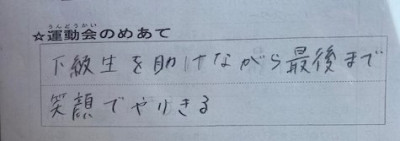 ☆運動会のめあて
下級生を助けながら最後まで
笑顔でやりきる